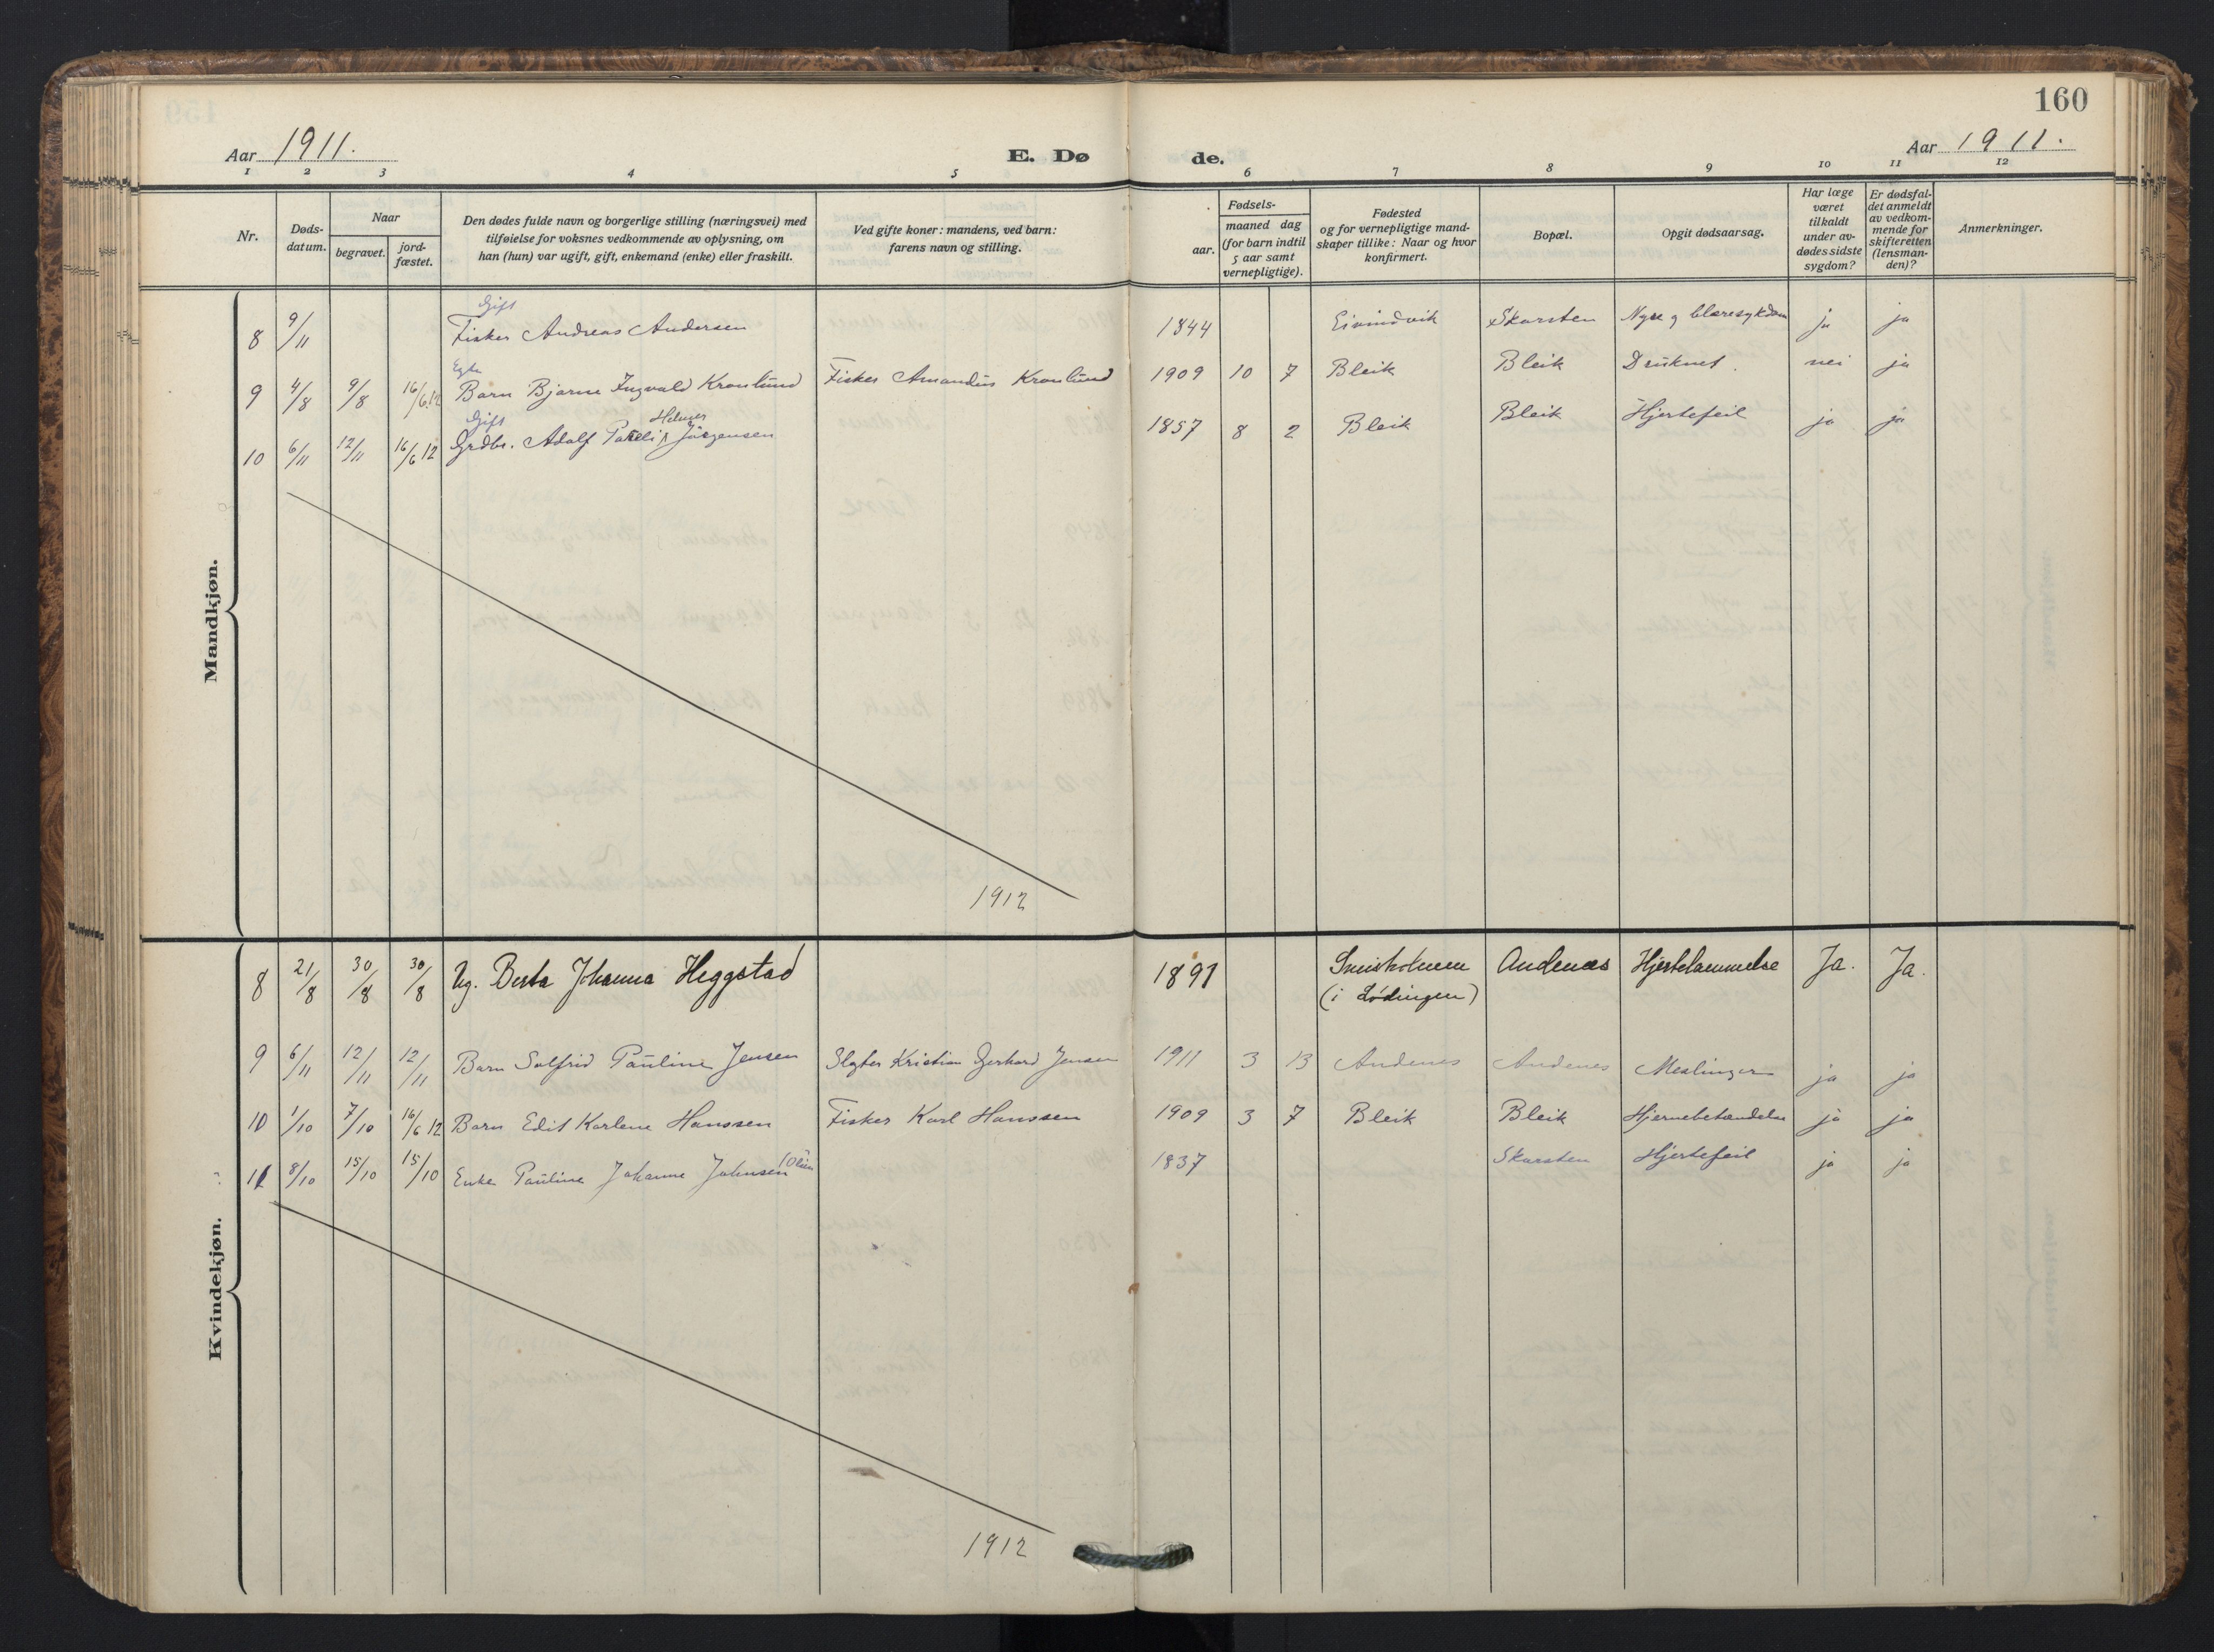 160
Aar 1911.
E. Døde.
Aar 1911.
1 2 3 4 5 6 7 8 9 10 11 12
Nr.
Døds-
datum.
Naar
begravet.
jord-
fæstet.
Den dødes fulde navn og borgerlige stilling (næringsvei) med
tilføielse for voksnes vedkommende av oplysning, om
han (hun) var ugift, gift, enkemand (enke) eller fraskilt.
Ved gifte koner: mandens, ved barn:
farens navn og stilling.
aar.
Fødsels-
maaned dag
(for barn indtil
5 aar samt
vernepligtige).
Fødested
og for vernepligtige mand-
skaper tillike: Naar og hvor
konfirmert.
Bopæl.
Opgit dødsaarsag.
Har læge
været
tilkaldt
under av-
dødes sidste
sygdom?
Er dødsfal-
det anmeldt
av vedkom-
mende for
skifteretten
(lensman-
den)?
Anmerkninger.
Mandkjøn.
Gift
8 9/11 Fisker Andreas Andersen 1844 Eivindvik Skarsten Nyre g blæresykdom ja ja
Egte
9 4/8 9/8 16/6.12 Barn Bjarne Ingvald Kronlund Fisker Amandus Kronlund 1909 10 7 Bleik Bleik Druknet. nei ja
Gift Helmer
10 6/11 12/11 16/6 12 Grdbr. Adolf Jörgensen 1857 8 2 Bleik Bleik Hjertefeil ja ja
1912
Kvindekjøn.
8 21/8 30/8 30/8 Ug. Berta Johanna Heggstad 1891 Andenæs Hjertelammelse Ja. Ja.
(i Lødingen)
9 6/11 12/11 12/11 Barn Solfrid Pauline Jensen Slagter Kristian Gerhard Jensen 1911 3 13 Andenes Andenes Meslinger ja ja
10 1/10 7/10 16/6 12 Barn Edit Karlene Hanssen Fisker Karl Hanssen 1909 3 7 Bleik Bleik Hjernebetændelse ja ja
11 8/10 15/10 15/10 Enke Pauline Johanne Johnsen 1837 Skarsten Hjertefeil ja ja
1912